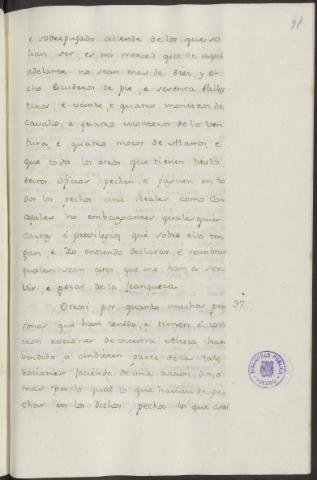 98
e sobrepujado allende de los que so
lian ser, es mi merced que de aqui
adelante no sean mas de diez, y o
cho Escuderos de pie, e sesenta Valles
teros, e veinte, e quatro monteros de
Cavallo, e quatro monteros de la Ven
tura, e quatro mozos de Alanos, e
que todos los otros que tienen
Oficios pechen, e paguen en to
dos los pechos ansi Reales como Con
cejales no embargantes qualesquier
Cartas e previlegios que sobre ello ten
gan, e Yo entiendo declarar, e nombrar
quales sean estos que me han a ser
vir e gozar de la franqueza.
Otrosi por quanto muchas per 37.
sonas que han tenido, e tienen, e
racion raciones de vuestra Mesa han
vendido o vendieren parte de las tales
raciones faciendo de una racion dos, o
mas por lo qual lo que havian de pe
char en los dichos pechos los que ansi
BIBLIOTECA PUBLICA
TOLEDO